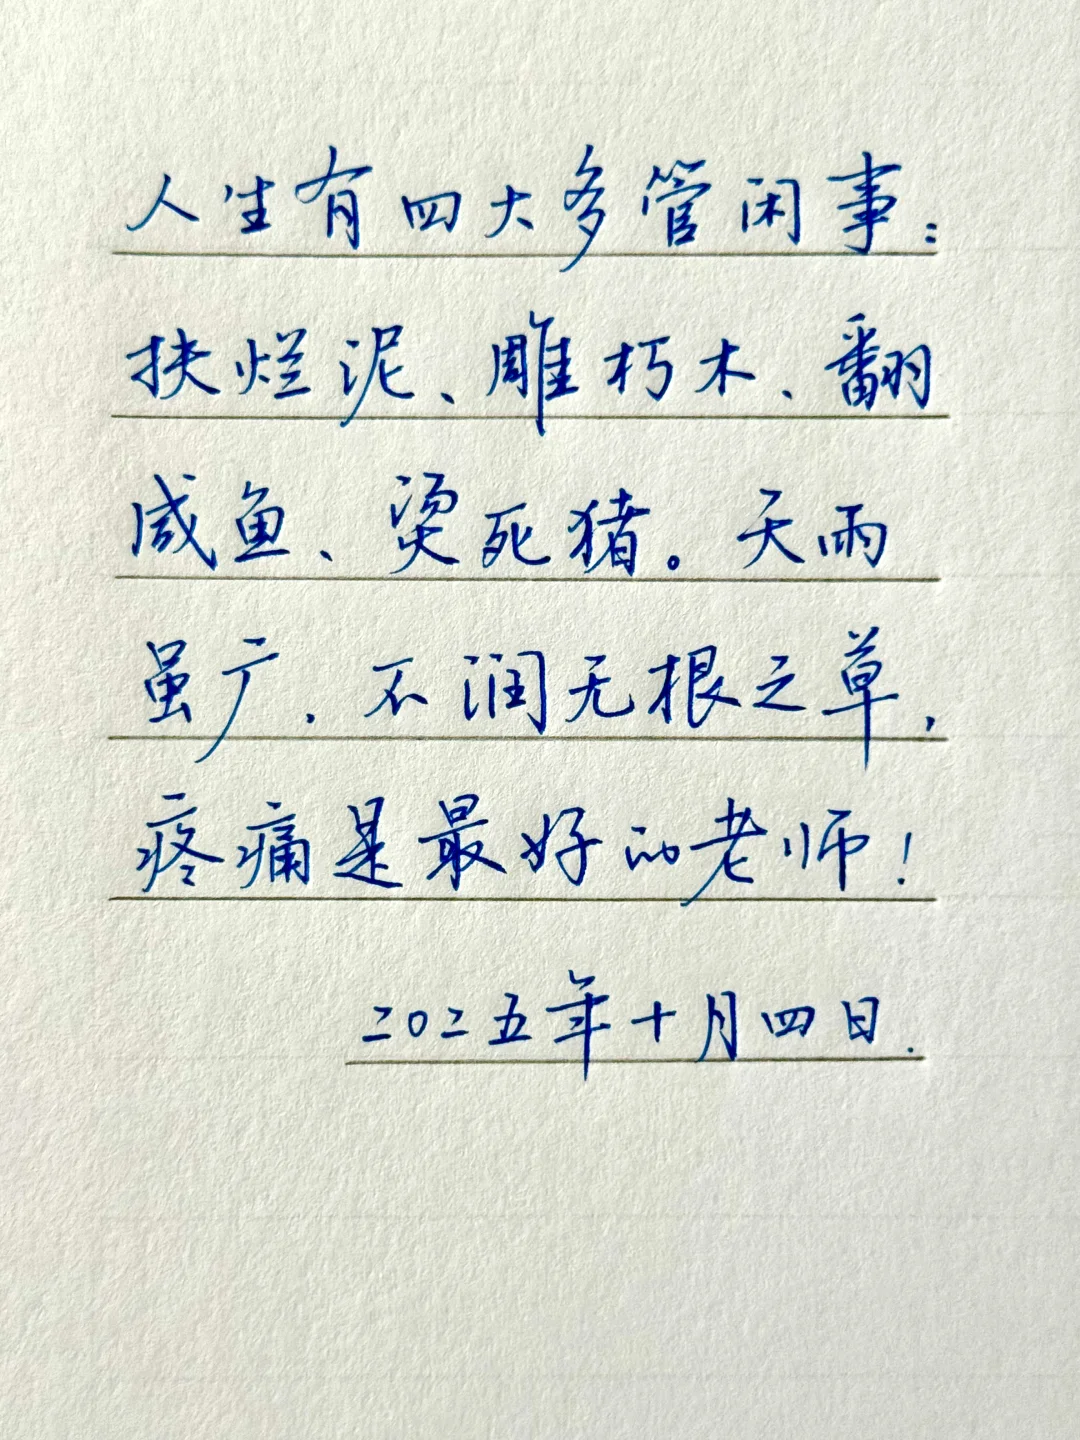 人生有四大多管闲事：
扶烂泥、雕朽木、翻
咸鱼、烫死猪。天雨
虽广，不润无根之草，
疼痛是最好的老师！
二〇二五年十月四日.